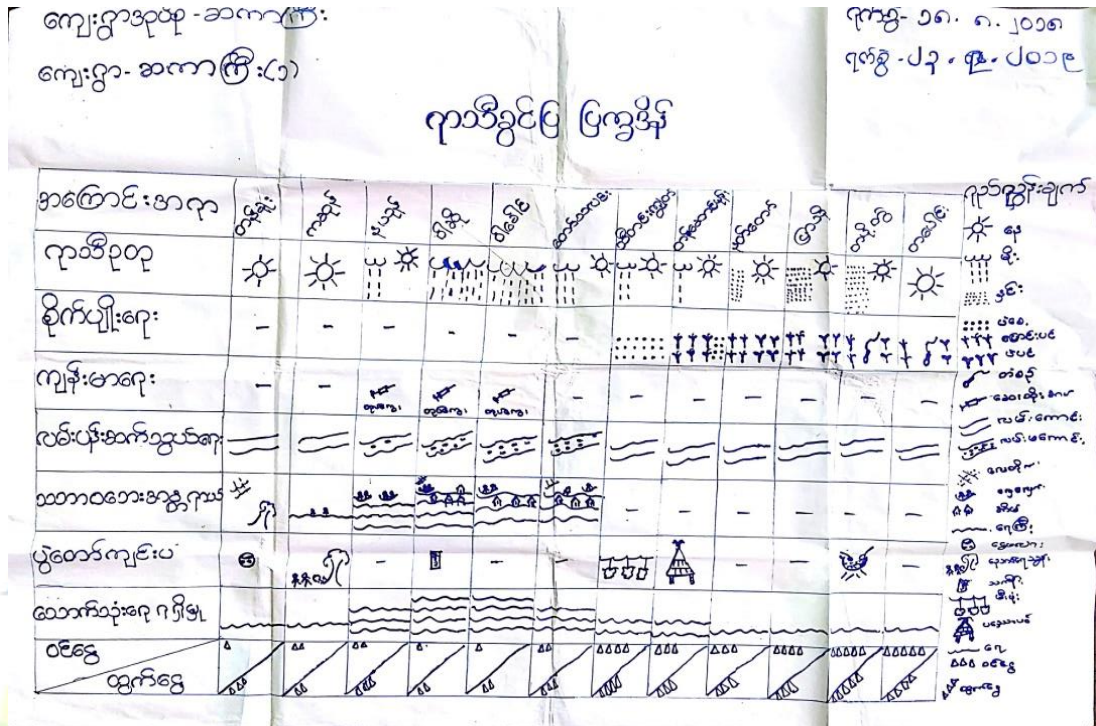 ကျေးရွာအုပ်စု - ဆကာကြီး
ကျေးရွာ - ဆကာကြီး(၁)
ရက်စွဲ - ၁၈. ၈. ၂၀၁၈
ရက်စွဲ - ၂၃. ၅. ၂၀၁၉
ရာသီခွင်ပြ ပြက္ခဒိန်
အကြောင်းအရာ
တန်ခူး
ကဆုန်
နယုန်
ဝါဆို
ဝါခေါင်
တော်သလင်း
သီတင်းကျွတ်
တန်ဆောင်မုန်း
နတ်တော်
ပြာသို
တပို့တွဲ
တပေါင်း
ရာသီဥတု
စိုက်ပျိုးရေး
- - - - - -
ကျန်းမာရေး
- -
- - - - - - -
လမ်းပန်းဆက်သွယ်ရေး
သဘာဝဘေးအန္တရာယ်
- - - - - -
ပွဲတော်ကျင်းပ
- - - - - -
သောက်သုံးရေ ရရှိမှု
ဝင်ငွေ
ထွက်ငွေ
ရာသီညွှန်းချက်
နေ
မိုး
နှင်း
ပဲစေ့
ပြောင်းပင်
ပဲပင်
တံစဉ်
ဆေးထိုးအပ်
လမ်းကောင်း
လမ်းမကောင်း
လေတိုက်
အိမ်
ရေကြီး
မီးပုံး
ပဒေသာပင်
ရေ
ဝင်ငွေ
ထွက်ငွေ